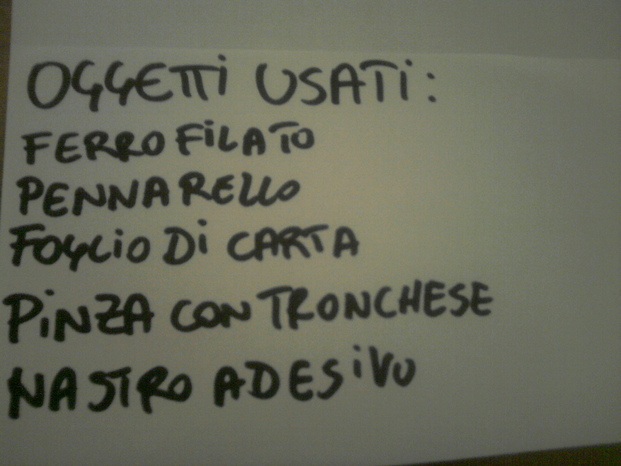 OGGETTI USATI:
FERRO FILATO
PENNARELLO
FOGLIO DI CARTA
PINZA CON TRONCHESE
NASTRO ADESIVO